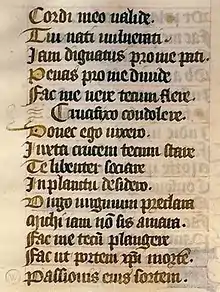 Cordi meo valide.
Tui nati vulnerati
Iam dignatus pro me pati
Penas pro me divide
Fac me vere tecum flere
Crucifixo condolere.
Donec ego vixero.
Iuxta crucem tecum stare
Te libenter sociare
In planctu desidero.
Virgo virginum preclara
Michi iam nō sis amara.
Fac me tecū plangere
Fac ut portem xp̄i morte.
Passionis eius sortem.